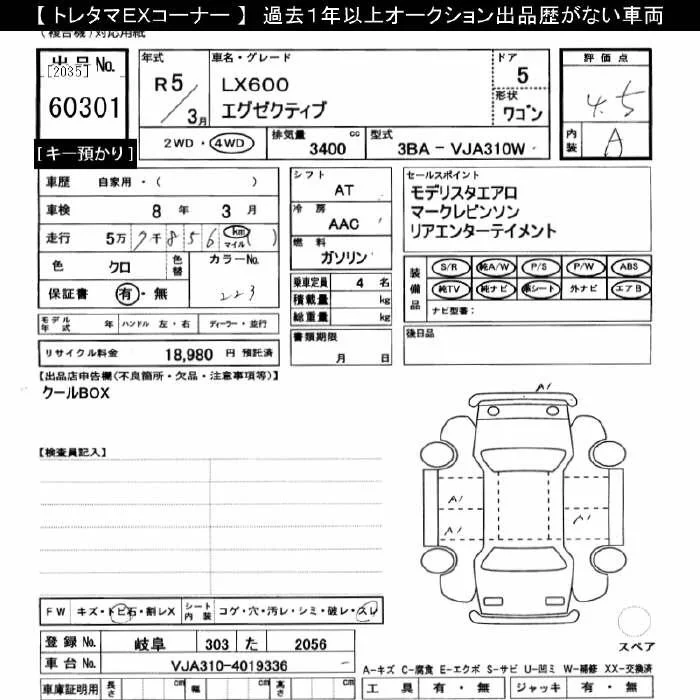 【 トレタマEXコーナー 】 過去1年以上オークション出品歴がない車両
(複合機)対応用紙
出品No.
[2035]
60301
[キー預かり]
年式
R5
3月
車名・グレード
LX600
エグゼクティブ
ドア
5
形状
ワゴン
2WD・4WD
排気量 cc
3400
型式
3BA - VJA310W
評価点
4.5
内装
A
車歴 自家用・( )
車検 8年 3月
走行 5万7千856 km マイル ( )
色 クロ
色替
カラーNo.
223
保証書 有・無
シフト
AT
冷房
AAC
燃料
ガソリン
乗車定員 4 名
積載量 kg
総重量 kg
書類期限
月 日
セールスポイント
モデリスタエアロ
マークレビンソン
リアエンターテイメント
装備品
S/R 純A/W P/S P/W ABS
純TV 純ナビ 革シート 外ナビ エアB
ナビ型番:
後日品
モデル年式 年 ハンドル 左・右 ディーラー・並行
リサイクル料金 18,980 円 預託済
【出品店申告欄(不良箇所・欠品・注意事項等)】
クールBOX
【検査員記入】
A1
A1
A1
A1
FW キズ・トビ石・割レX
シート内装 コゲ・穴・汚レ・シミ・破レ・スレ
登録No. 岐阜 303 た 2056
車台No. VJA310-4019336
車庫証明用 長さ cm 幅 cm 高さ cm
スペア
A-キズ C-腐食 E-エクボ S-サビ U-凹ミ W-補修 XX-交換済
工具 有・無 ジャッキ 有・無